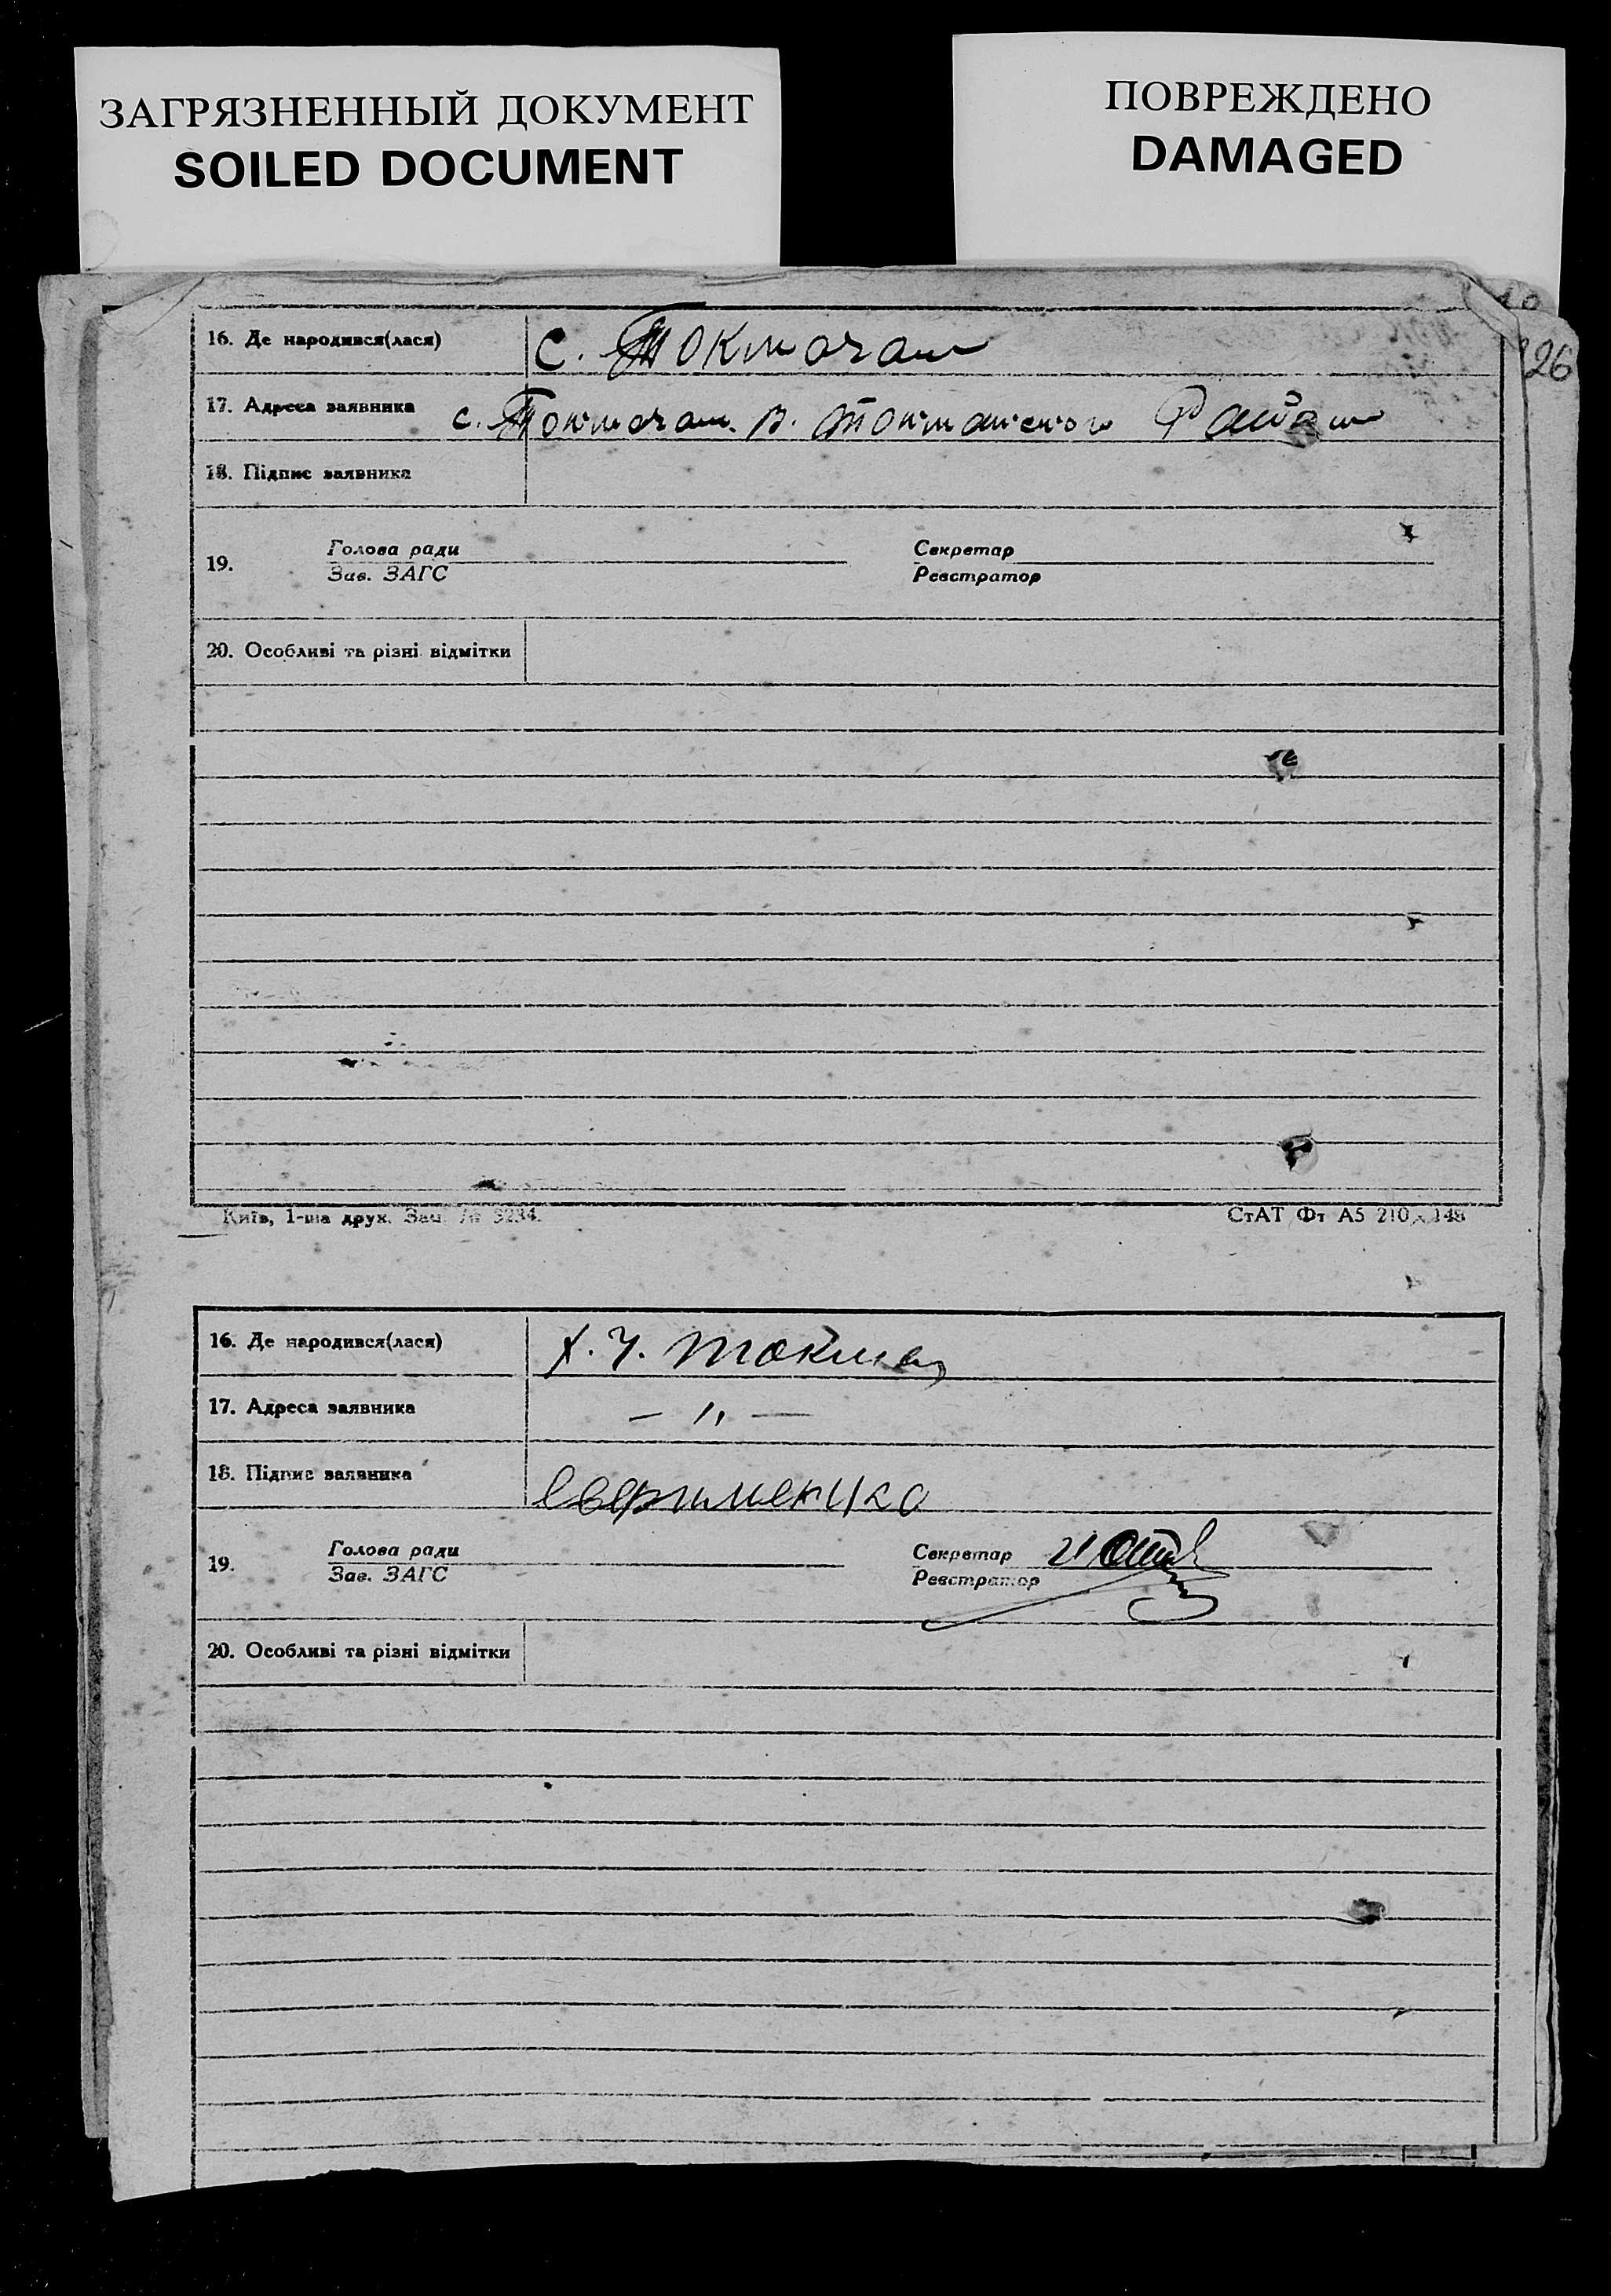 ЗАГРЯЗНЕННЫЙ ДОКУМЕНТ
SOILED DOCUMENT
ПОВРЕЖДЕНО
DAMAGED
26
16. Де народився(лася) с.
17. Адреса заявника с. В.
18. Підпис заявника
19. Голова ради Секретар
Зав. ЗАГС Реєстратор
20. Особливі та різні відмітки
Київ, 1-ша друк. Зам. № 3234. СтАТ Фт А5 210 х 148
16. Де народився(лася) Х. Ч. Токмак
17. Адреса заявника — „ —
18. Підпис заявника
19. Голова ради Секретар
Зав. ЗАГС Реєстратор
20. Особливі та різні відмітки